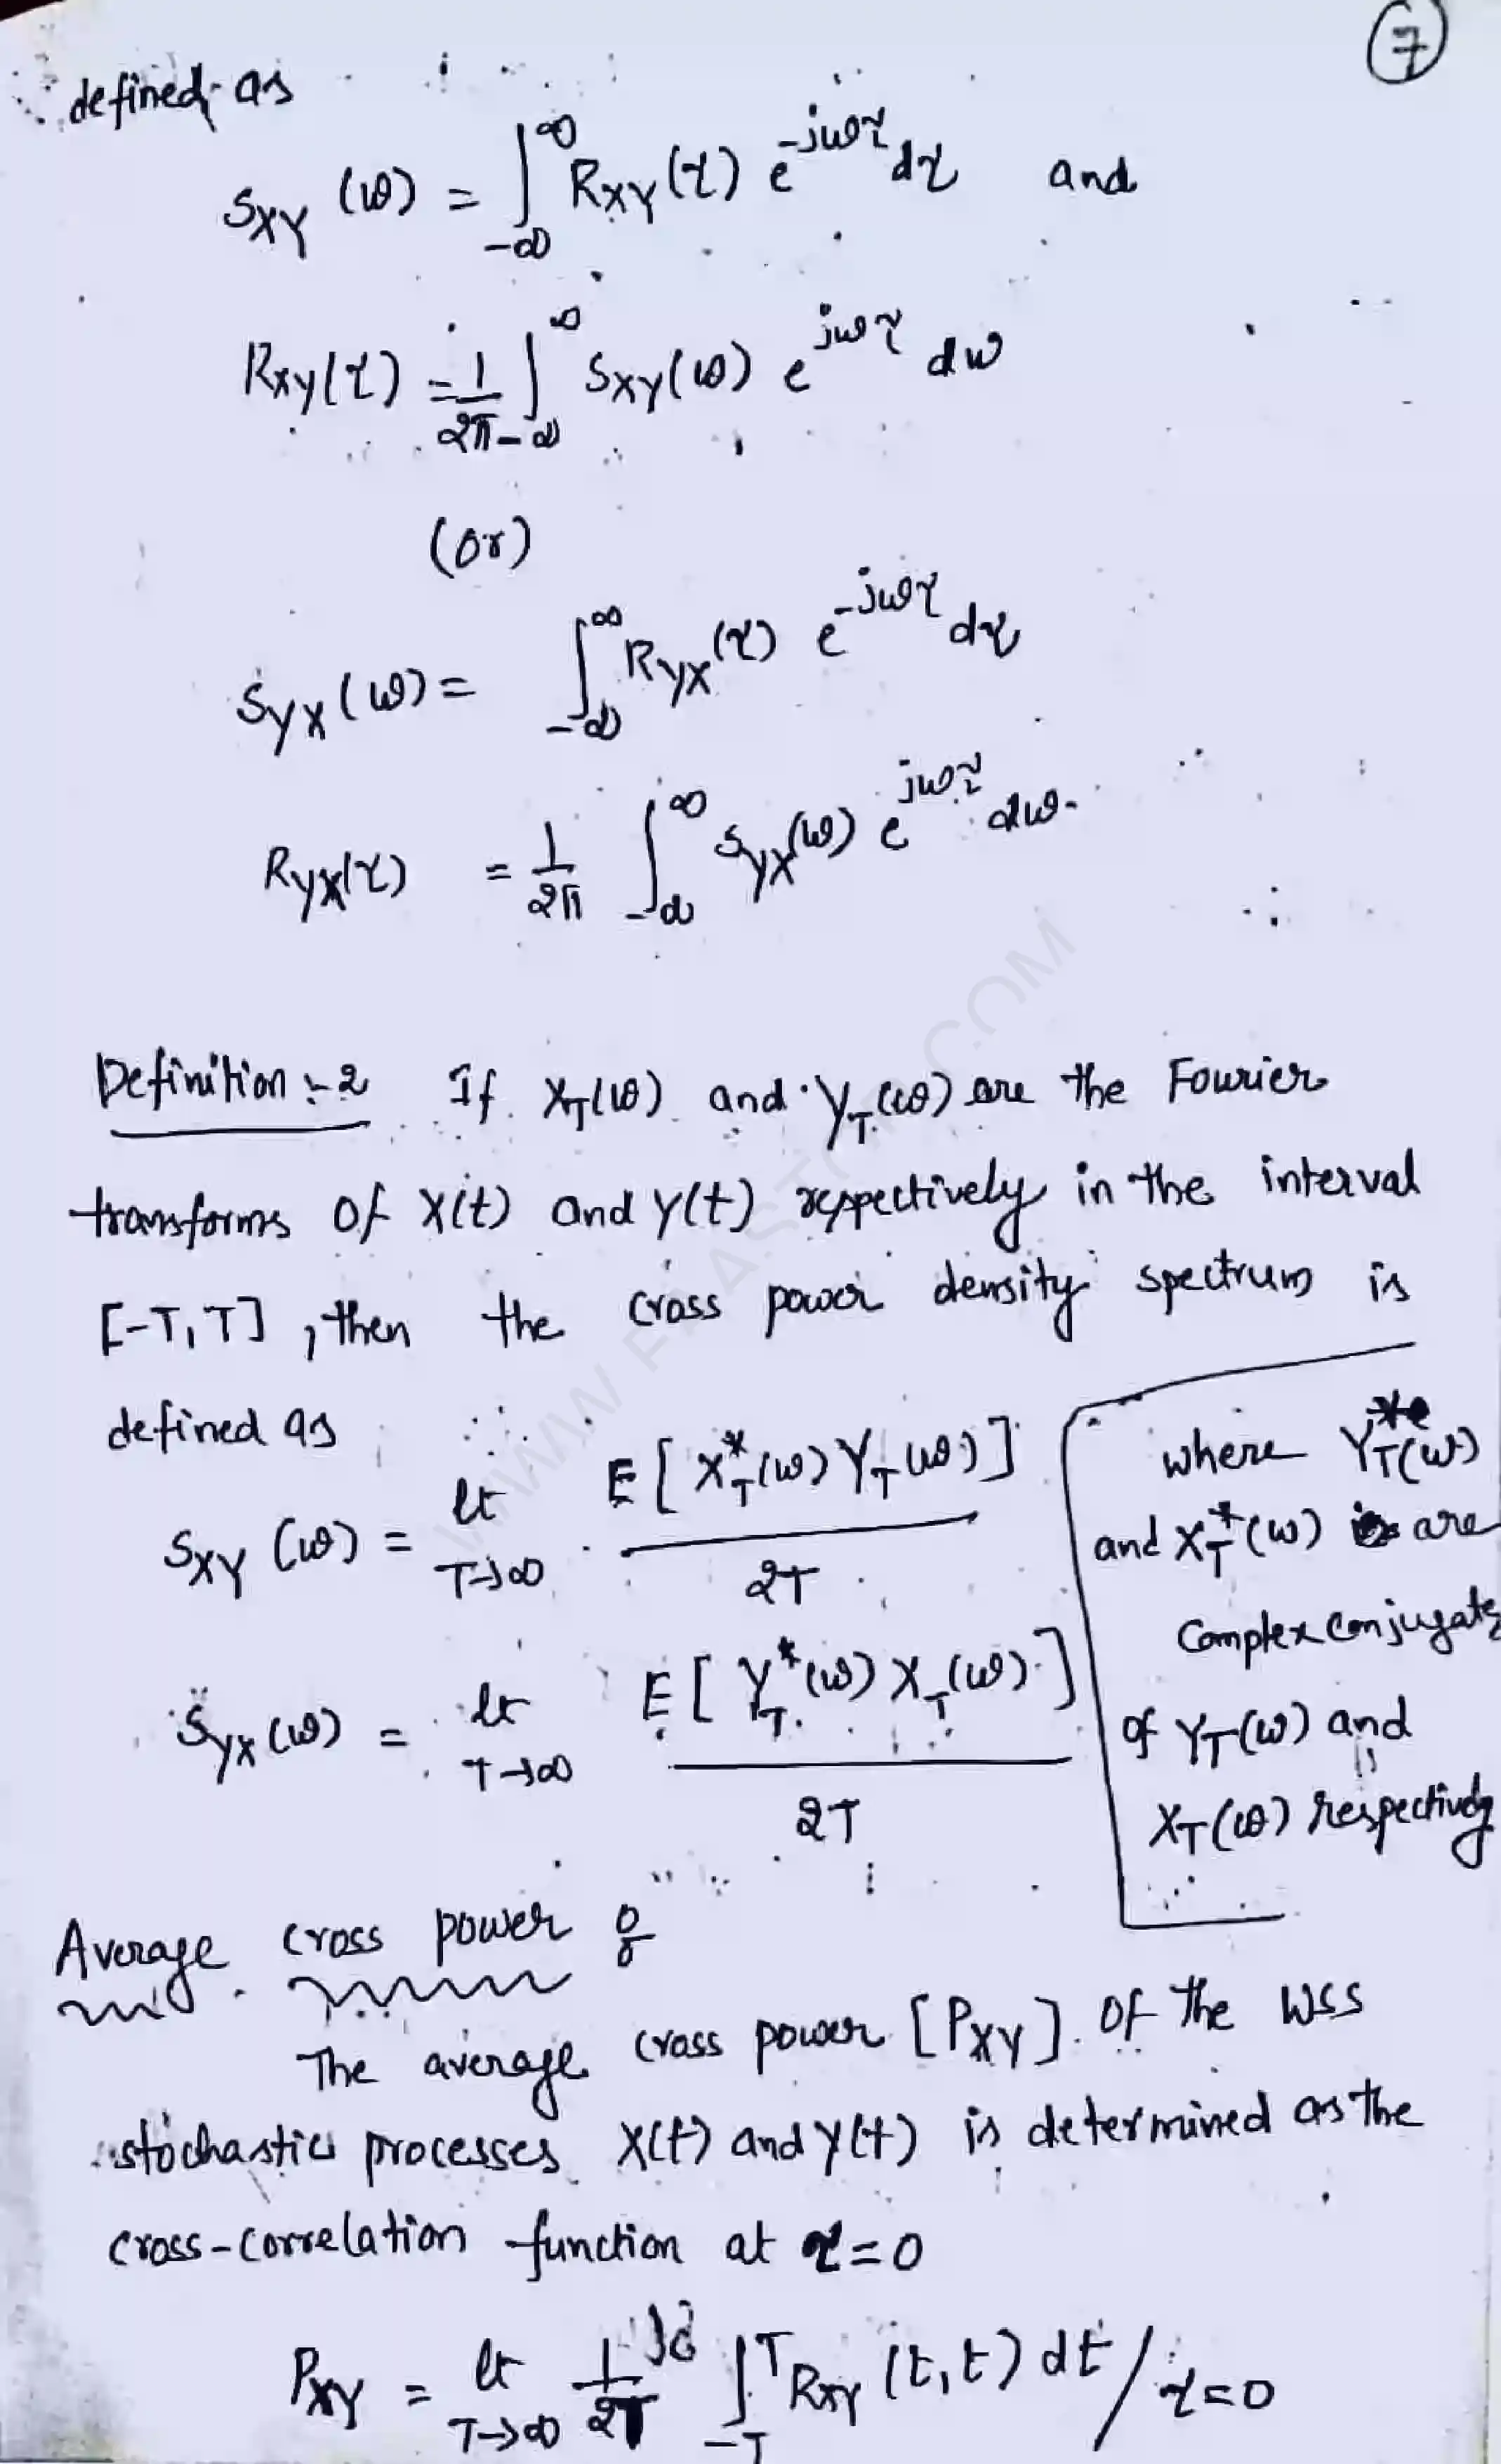 7
defined as
S_XY (ω) = ∫_{-∞}^{∞} R_XY(τ) e^{-jωτ} dτ and
R_XY(τ) = 1/2π ∫_{-∞}^{∞} S_XY(ω) e^{jωτ} dω
(or)
S_YX(ω) = ∫_{-∞}^{∞} R_YX(τ) e^{-jωτ} dτ
R_YX(τ) = 1/2π ∫_{-∞}^{∞} S_YX(ω) e^{jωτ} dω.
Definition :- 2 If X_T(ω) and Y_T(ω) are the Fourier
transforms of X(t) and Y(t) respectively in the interval
[-T, T], then the cross power density spectrum is
defined as
S_XY (ω) = lt_{T→∞} E[X_T^*(ω) Y_T(ω)] / 2T
S_YX (ω) = lt_{T→∞} E[Y_T^*(ω) X_T(ω)] / 2T
where Y_T^*(ω)
and X_T^*(ω) are
Complex conjugate
of Y_T(ω) and
X_T(ω) respectively
Average cross power :
The average cross power [P_XY] of the WSS
stochastic processes X(t) and Y(t) is determined as the
cross-correlation function at τ=0
P_XY = lt_{T→∞} 1/2T ∫_{-T}^{T} R_XY (t,t) dt / τ=0